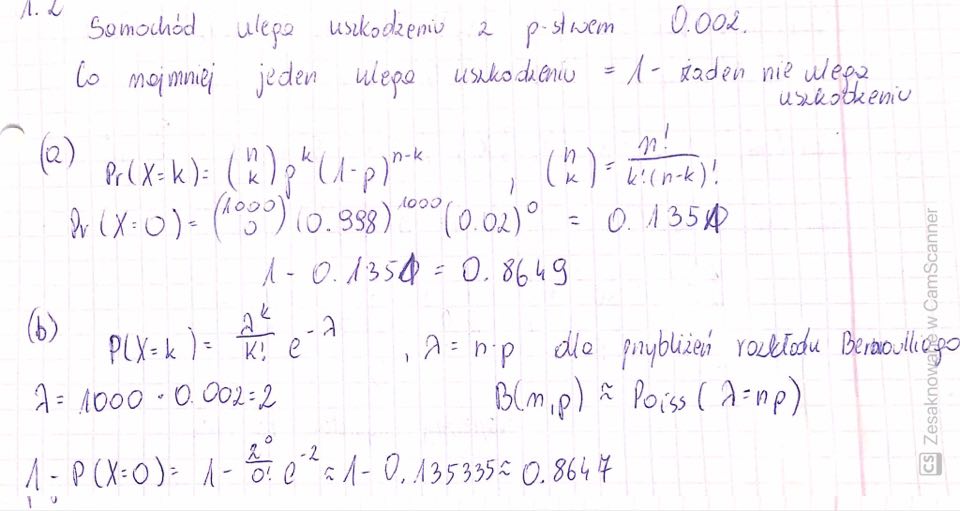 1.2
Samochód ulega uszkodzeniu z p-stwem 0.002.
Co najmniej jeden ulega uszkodzeniu = 1 - żaden nie ulega
uszkodzeniu
(a) Pr(X=k) = (n k) p^k (1-p)^{n-k} , (n k) = n! / k!(n-k)!
Pr(X=0) = (1000 0) (0.998)^{1000} (0.02)^0 = 0.1351
1 - 0.1351 = 0.8649
(b) P(X=k) = λ^k / k! e^{-λ} , λ = n·p dla przybliżeń rozkładu Bernoulliego
λ = 1000 · 0.002 = 2 B(n,p) ≈ Poiss(λ=np)
1 - P(X=0) = 1 - 2^0 / 0! e^{-2} ≈ 1 - 0.135335 ≈ 0.8647
CS Zeskanowane w CamScanner